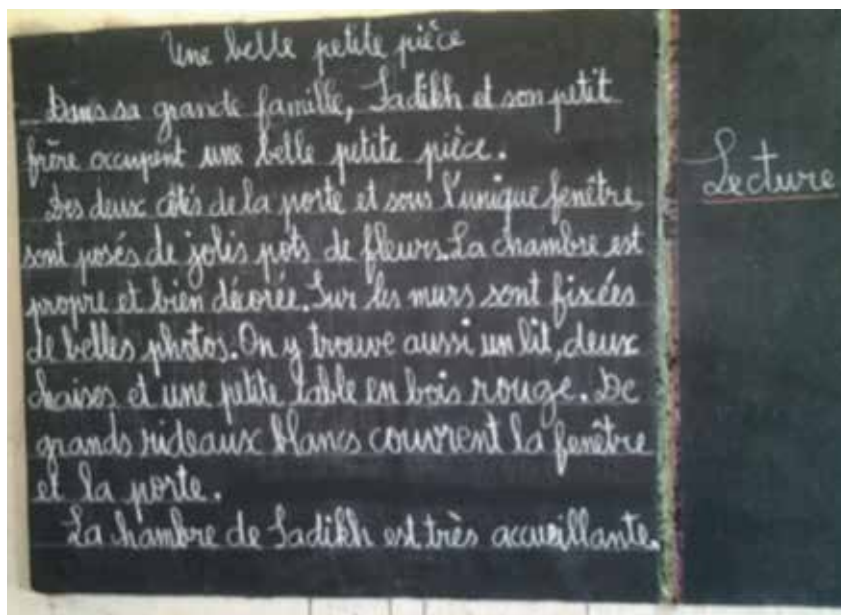 Une belle petite pièce
Dans sa grande famille, Sadikh et son petit
frère occupent une belle petite pièce.
Des deux côtés de la porte et sous l'unique fenêtre,
sont posés de jolis pots de fleurs. La chambre est
propre et bien décorée. Sur les murs sont fixées
de belles photos. On y trouve aussi un lit, deux
chaises et une petite table en bois rouge. De
grands rideaux blancs couvrent la fenêtre
et la porte.
La hambre de Sadikh est très accueillante.
Lecture